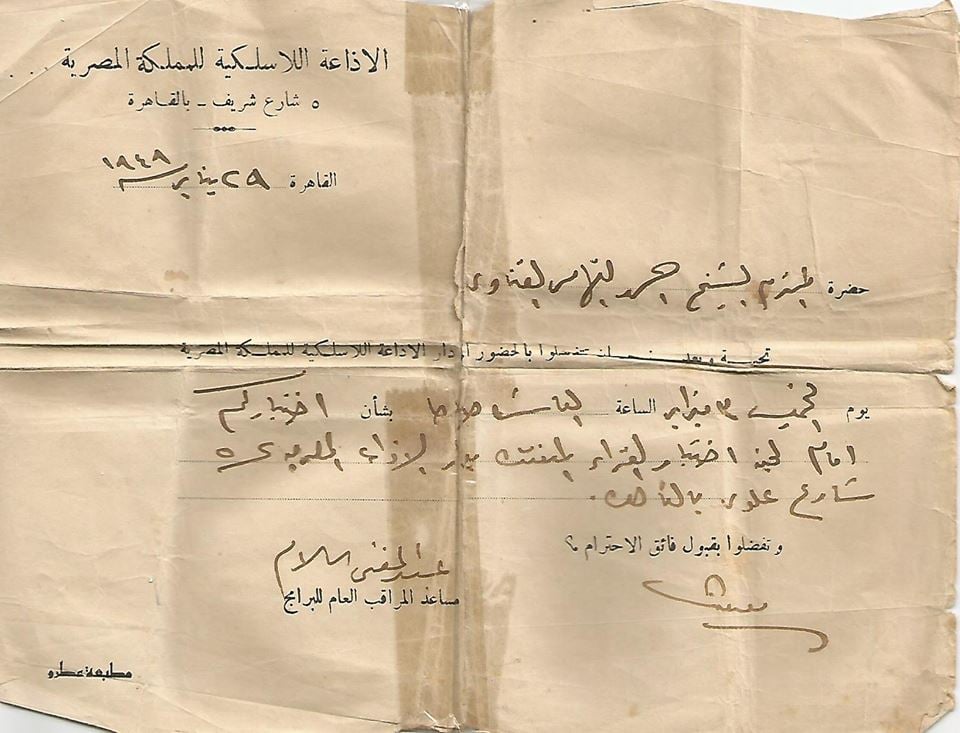 الاذاعة اللاسلكية للمملكة المصرية
٥ شارع شريف ـ بالقاهرة
القاهرة ٢٩ يناير سنة ١٩٤٩
حضرة المحترم الشيخ احمد التهامى القناوى
تحية وبعد تتفضلوا بالحضور لدار الاذاعة اللاسلكية للمملكة المصرية
يوم الخميس ٣ فبراير الساعة العاشرة صباحا بشأن اختباركم
امام لجنة اختبار القراء المنعقدة بدار الاذاعة المصرية ٥
شارع علوى بالقاهرة.
وتفضلوا بقبول فائق الاحترام ؟
مساعد المراقب العام للبرامج
مطبعة عطرو